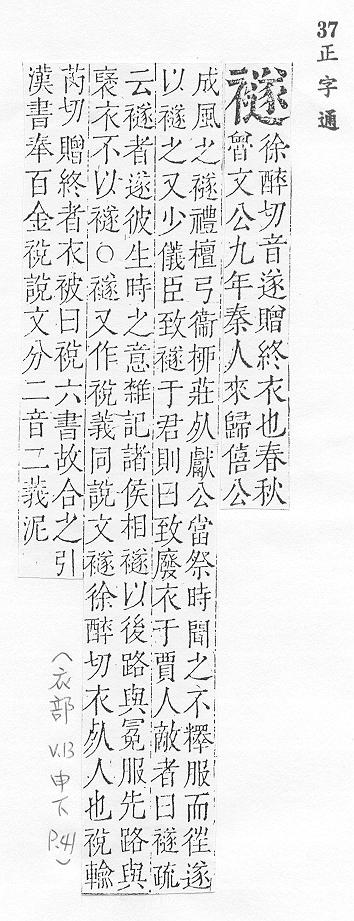 37 正字通
襚
徐醉切音遂贈終衣也春秋
曾文公九年秦人來歸僖公
成風之襚禮檀弓衞柳莊𣦸獻公當祭時聞之不釋服而徃遂
以襚之又少儀臣致襚于君則曰致廢衣于賈人敵者曰襚疏
云襚者遂彼生時之意雜記諸侯相襚以後路與冕服先路與
褒衣不以襚○襚又作裞義同說文襚徐醉切衣𣦸人也裞輸
芮切贈終者衣被曰裞六書故合之引
漢書奉百金裞說文分二音二義泥
(衣部 V.13 申下 P.41)